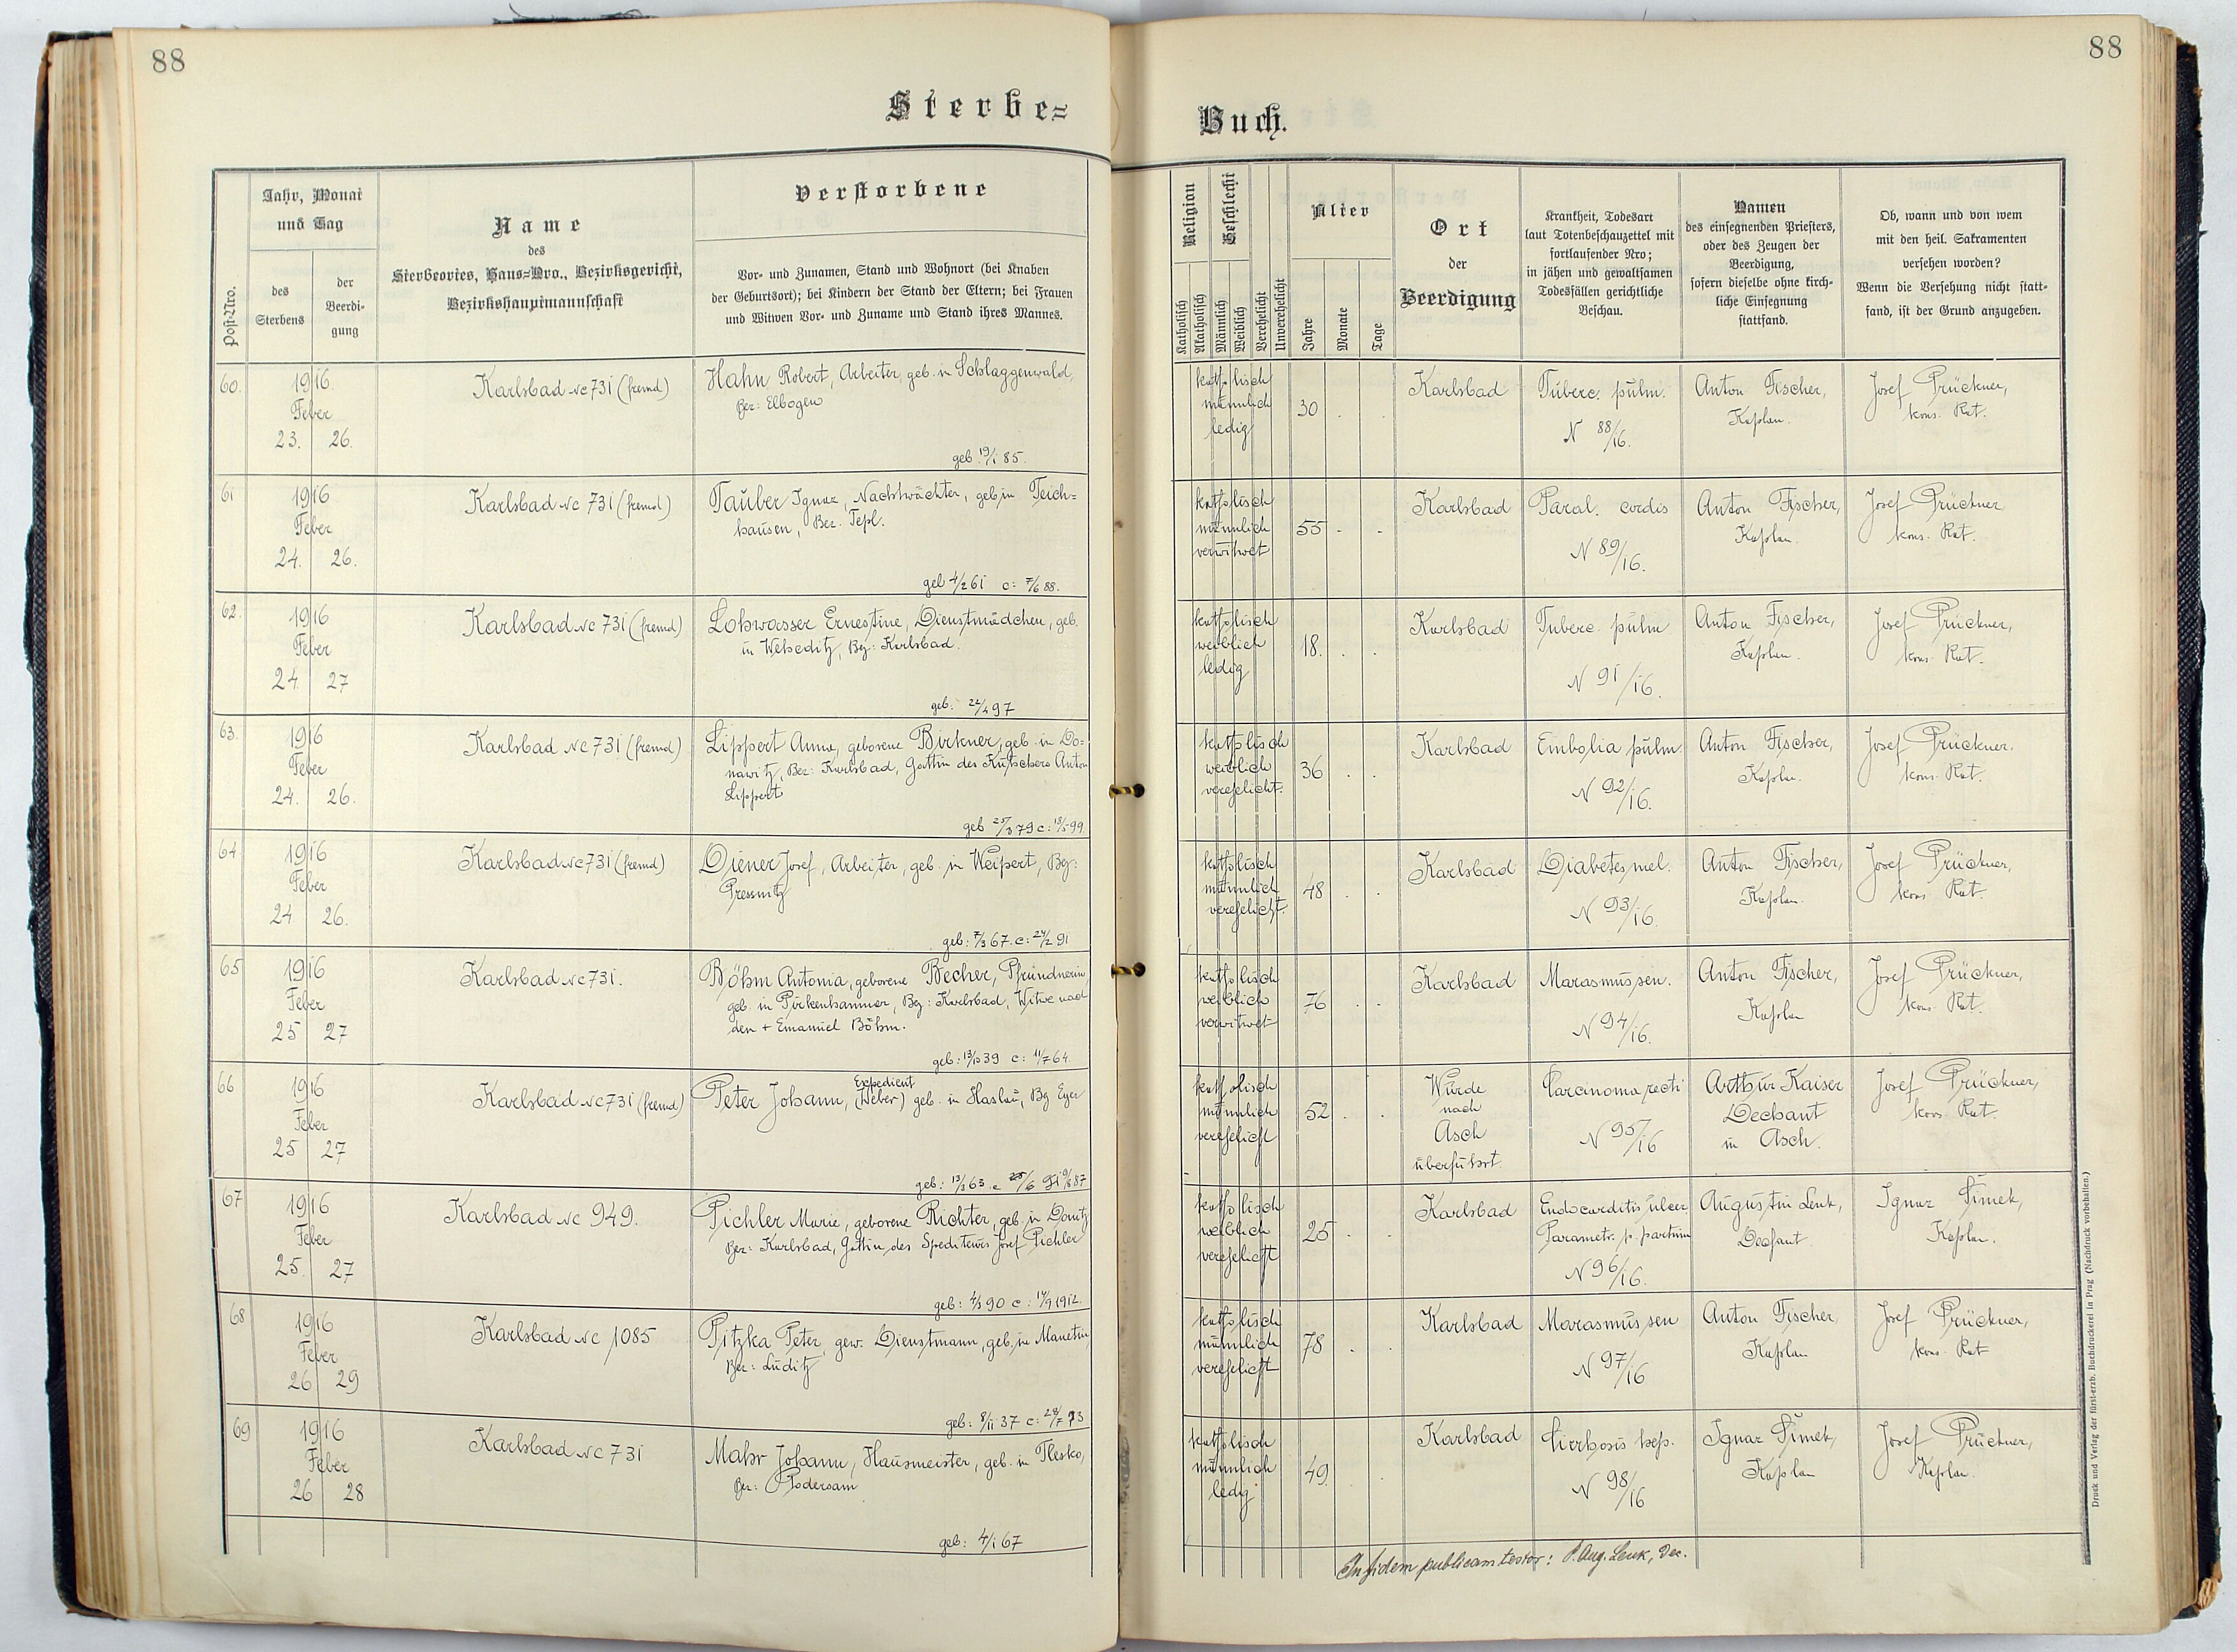 88
88
Sterbe=
Buch.
Post-Nro.
Jahr, Monat
und Tag
des
Sterbens
der
Beerdi-
gung
Name
des
Sterbeortes, Haus=Nro., Bezirksgericht,
Bezirkshauptmannschaft
Verstorbene
Vor- und Zunamen, Stand und Wohnort (bei Knaben
der Geburtsort); bei Kindern der Stand der Eltern; bei Frauen
und Witwen Vor- und Zuname und Stand ihres Mannes.
Religion
Katholisch
Akatholisch
Geschlecht
Männlich
Weiblich
Verehelicht
Unverehelicht
Alter
Jahre
Monate
Tage
Ort
der
Beerdigung
Krankheit, Todesart
laut Totenbeschauzettel mit
fortlaufender Nro;
in jähen und gewaltsamen
Todesfällen gerichtliche
Beschau.
Namen
des einsegnenden Priesters,
oder des Zeugen der
Beerdigung,
sofern dieselbe ohne kirch-
liche Einsegnung
stattfand.
Ob, wann und von wem
mit den heil. Sakramenten
versehen worden?
Wenn die Versehung nicht statt-
fand, ist der Grund anzugeben.
60.
1916.
Feber
23. 26.
Karlsbad Nc 731 (fremd)
Hahn Robert, Arbeiter, geb. in Schlaggenwald,
Bez: Elbogen
geb. 19/1 85.
katholisch
männlich
ledig
30 . .
Karlsbad
Tuberc. pulm.
N 88/16.
Anton Fischer,
Kaplan.
Josef Prückner,
kons. Rat.
61
1916
Feber
24. 26.
Karlsbad Nc 731 (fremd)
Tauber Ignaz, Nachtwächter, geb in Teich=
hausen, Bez. Tepl.
geb 4/2 61 c: 7/6 88.
katholisch
männlich
verwitwet
55 - -
Karlsbad
Paral. cordis
N 89/16.
Anton Fischer,
Kaplan.
Josef Prückner,
kons. Rat.
62.
1916
Feber
24 27
Karlsbad Nc 731 (fremd)
Lohwasser Ernestine, Dienstmädchen, geb.
in Weheditz, Bez: Karlsbad.
geb: 22/4 97
katholisch
weiblich
ledig
18. . .
Karlsbad
Tuberc. pulm
N 91/16.
Anton Fischer,
Kaplan.
Josef Prückner,
kons. Rat.
63.
1916
Feber
24. 26.
Karlsbad Nc 731 (fremd)
Lippert Anna, geborene Birkner, geb. in Do=
nawitz, Bez: Karlsbad, Gattin des Kutschers Anton
Lippert
geb 25/3 79 c: 18/5 99
katholisch
weiblich
verehelicht.
36 . .
Karlsbad
Embolia pulm
N 92/16.
Anton Fischer,
Kaplan.
Josef Prückner.
kons. Rat.
64
1916
Feber
24 26.
Karlsbad Nc 731 (fremd)
Diener Josef, Arbeiter, geb. in Weipert, Bez:
Pressnitz
geb: 7/3 67. c: 24/2 91
katholisch
männlich
verehelicht.
48 . .
Karlsbad
Diabetes mel.
N 93/16.
Anton Fischer,
Kaplan.
Josef Prückner,
kons. Rat.
65
1916
Feber
25 27
Karlsbad Nc 731.
Böhm Antonia, geborene Becher, Pfründnerin
geb. in Pirkenhammer, Bez: Karlsbad, Witwe nach
den + Emanuel Böhm.
geb: 13/10 39 c: 11/7 64.
katholisch
weiblich
verwitwet
76 . .
Karlsbad
Marasmus sen.
N 94/16.
Anton Fischer,
Kaplan
Josef Prückner,
kons. Rat.
66
1916
Feber
25 27
Karlsbad Nc 731 (fremd)
Expedient
Peter Johann, (Weber) geb. in Haslau, Bez Eger
geb: 13/3 63
katholisch
männlich
verehelicht
52 . .
Wurde
nach
Asch
überführt.
Carcinoma recti
N 95/16
Arthur Kaiser
Dechant
in Asch.
Josef Prückner,
kons. Rat.
67
1916
Feber
25. 27
Karlsbad Nc 949.
Pichler Marie, geborene Richter, geb. in Donitz
Bez: Karlsbad, Gattin des Spediteurs Josef Pichler
geb: 4/3 90 c: 14/9 1912.
katholisch
weiblich
verehelicht
25 . .
Karlsbad
Endocarditis ulcer
Parametr. p. partum
N 96/16.
Augustin Lenk,
Dechant
Ignaz Šimek,
Kaplan.
68
1916
Feber
26 29
Karlsbad Nc 1085
Pitzka Peter, gew. Dienstmann, geb. in Manetin,
Bez: Luditz
geb: 8/11 37 c: 28/7 73
katholisch
männlich
verehelicht
78 . .
Karlsbad
Marasmus sen
N 97/16
Anton Fischer,
Kaplan
Josef Prückner,
kons. Rat
69
1916
Feber
26 28
Karlsbad Nc 731
Mahr Johann, Hausmeister, geb. in Flesko,
Bez: Podersam
geb: 4/1 67
katholisch
männlich
ledig
49. .
Karlsbad
Cirrhosis hep.
N 98/16
Ignaz Šimek,
Kaplan
Josef Prückner,
Kaplan.
In fidem publicam testor: P. Aug. Lenk, Dec.
Druck und Verlag der fürst-erzb. Buchdruckerei in Prag (Nachdruck vorbehalten.)